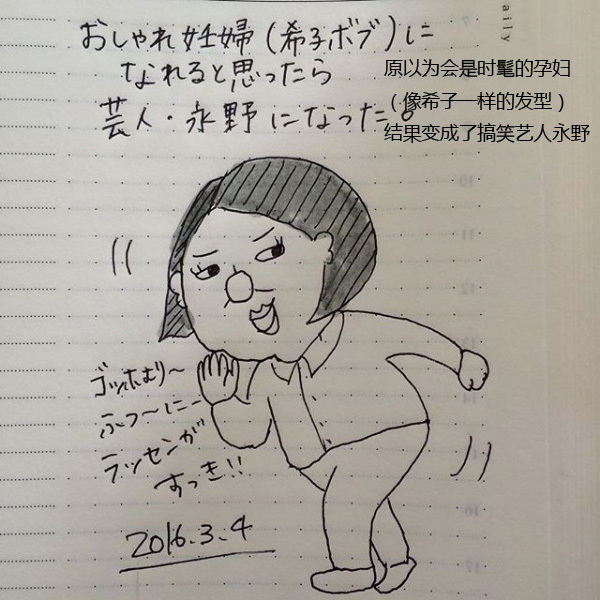 おしゃれ妊婦(希子ボブ)に
なれると思ったら
芸人・永野になった。
原以为会是时髦的孕妇
（像希子一样的发型）
结果变成了搞笑艺人永野
ゴッホより〜
ふつ〜に〜
ラッセンが
すっき!!
2016.3.4
aily
10
11
12
13
14
16
17